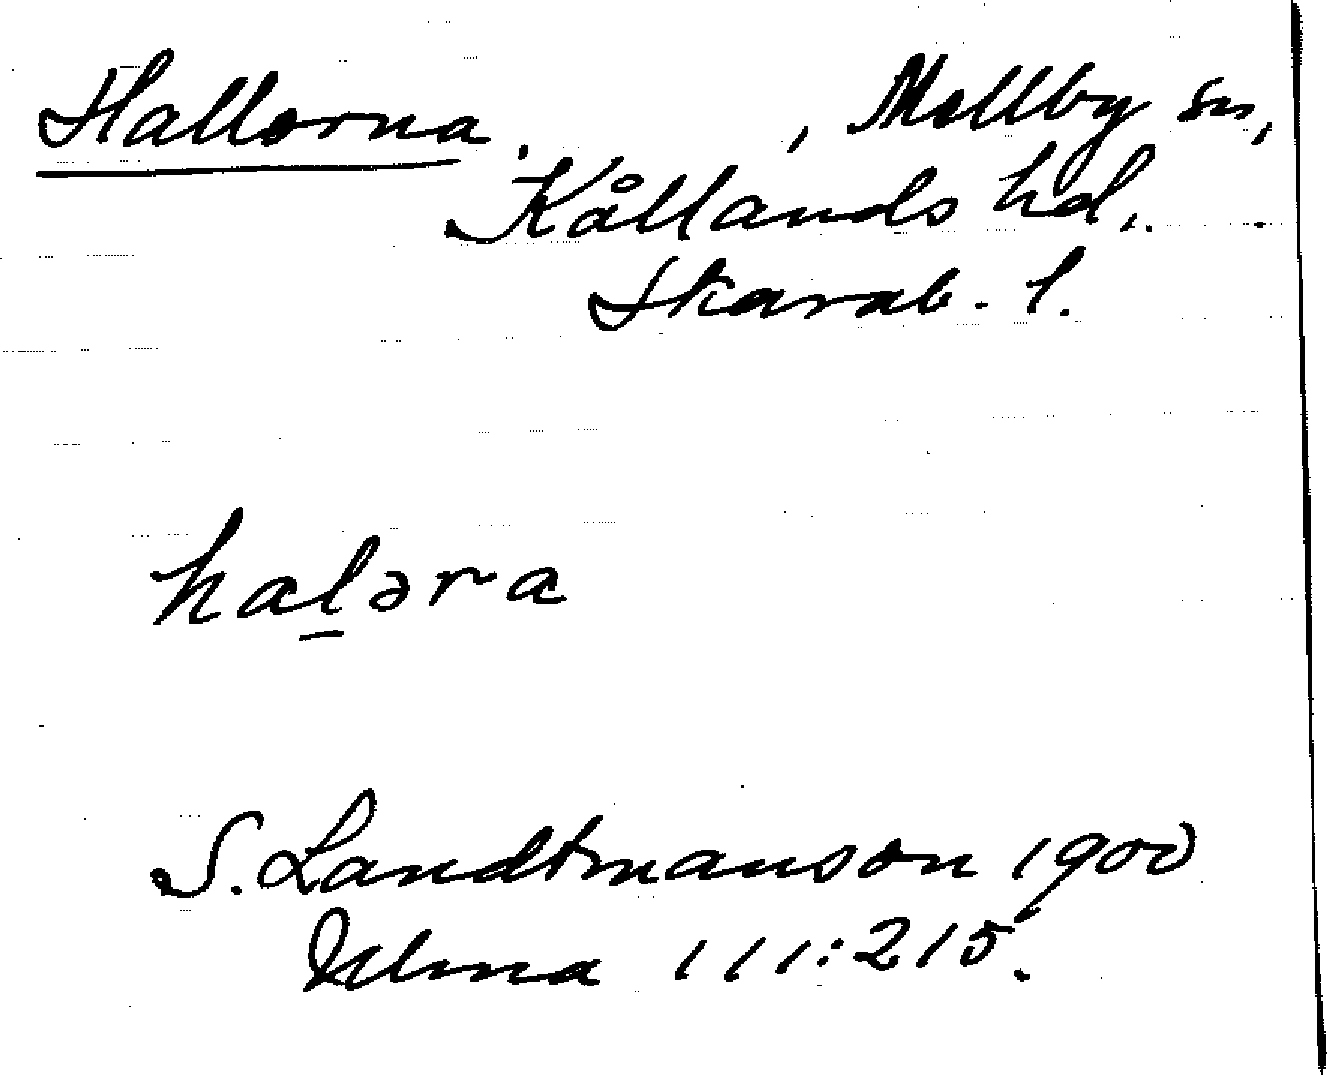 Hallorna, , Mellby sn,
Kållands hd.
Skarab. l.
hal̲əra
S. Landtmanson 1900
Ulma 111:215.